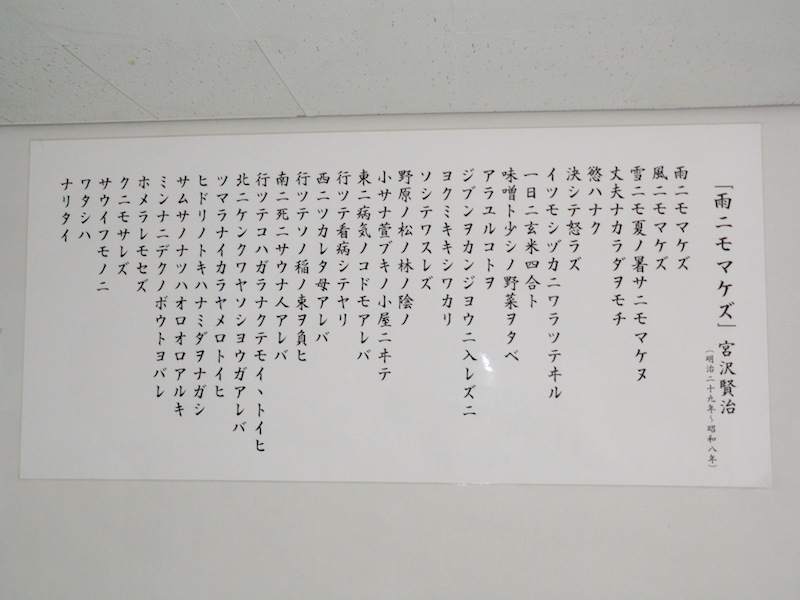 「雨ニモマケズ」宮沢賢治
(明治二十九年~昭和八年)
雨ニモマケズ
風ニモマケズ
雪ニモ夏ノ暑サニモマケヌ
丈夫ナカラダヲモチ
慾ハナク
決シテ怒ラズ
イツモシヅカニワラツテヰル
一日ニ玄米四合ト
味噌ト少シノ野菜ヲタベ
アラユルコトヲ
ジブンヲカンジヨウニ入レズニ
ヨクミキキシワカリ
ソシテワスレズ
野原ノ松ノ林ノ陰ノ
小サナ萱ブキノ小屋ニヰテ
東ニ病気ノコドモアレバ
行ツテ看病シテヤリ
西ニツカレタ母アレバ
行ツテソノ稲ノ束ヲ負ヒ
南ニ死ニサウナ人アレバ
行ツテコハガラナクテモイヽトイヒ
北ニケンクワヤソシヨウガアレバ
ツマラナイカラヤメロトイヒ
ヒドリノトキハナミダヲナガシ
サムサノナツハオロオロアルキ
ミンナニデクノボウトヨバレ
ホメラレモセズ
クニモサレズ
サウイフモノニ
ワタシハ
ナリタイ